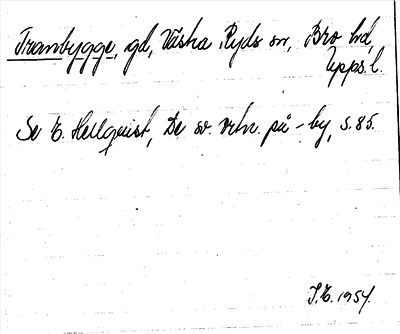 Tranbygge, gd, Västra Ryds sn, Bro hd,
Upps. l.
Se E. Hellquist, De sv. ortn. på -by, s. 85.
J.E. 1954.